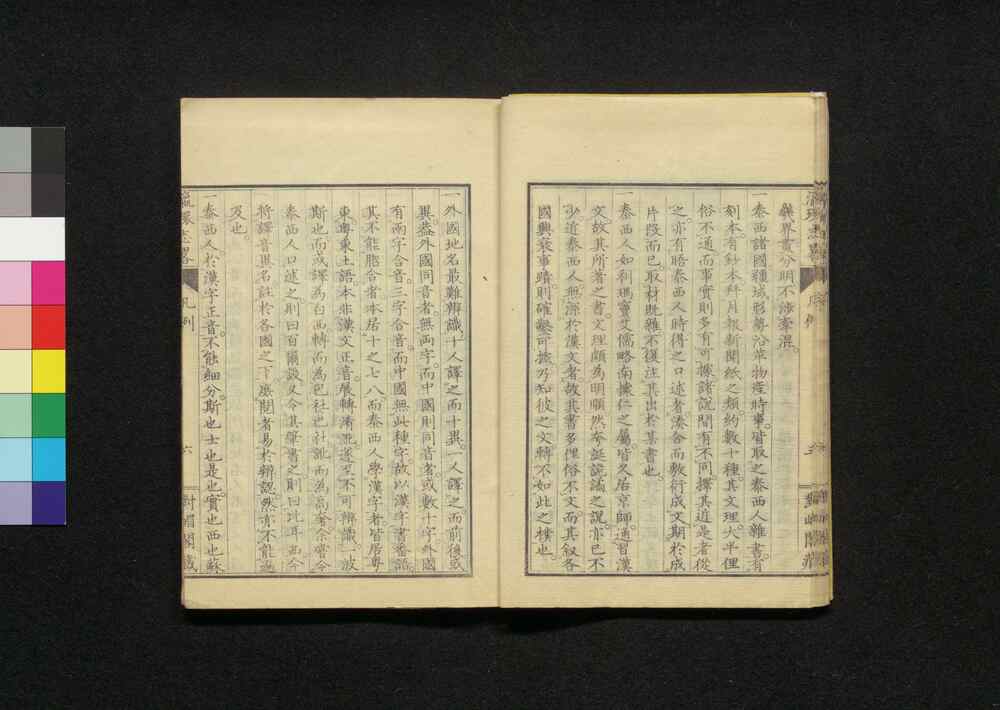 義界畫分明不涉牽混。
一泰西諸國疆域形勢沿革物產時事。皆取之泰西人雜書。有
刻本有鈔本幷月報新聞紙之類約數十種其文理。大半俚
俗不通而事實則多有可據諸說間有不同擇其近是者從
之。亦有晤泰西人時得之口述者。湊合而敷衍成文期於成
片段而已。取材旣雜不復注其出於某書也。
一泰西人如利瑪竇艾儒略南懷仁之屬。皆久居京師。通習漢
文故其所著之書。文理頗為明順然夸誕詭譎之說。亦已不
少近泰西人無深於漢文者故其書多俚俗不文。而其叙各
國興衰事蹟。則確鑿可據。乃知彼之文轉不如此之樸也。
一外國地名最難辨識。十人譯之而十異。一人譯之。而前後或
異。蓋外國同音者無兩字。而中國則同音者或數十字。外國
有兩字合音。三字合音。而中國無此種字。故以漢字書番語。
其不能脗合者本居十之七八而泰西人學漢字者。皆居粵
東粵東土語。本非漢文正音。展轉淆訛。遂至不可辨識一波
斯也而或譯為白西轉而為包社巴社訛而為高奢余嘗令
泰西人口述之。則曰百爾設又令其筆書之則曰比耳西今
將譯音異名註於各國之下庶閱者易於辨認。然亦不能遍
及也。
一泰西人於漢字正音。不能細分斯也士也是也。實也西也蘇
瀛環志畧
凡例
六
對嵋閣藏